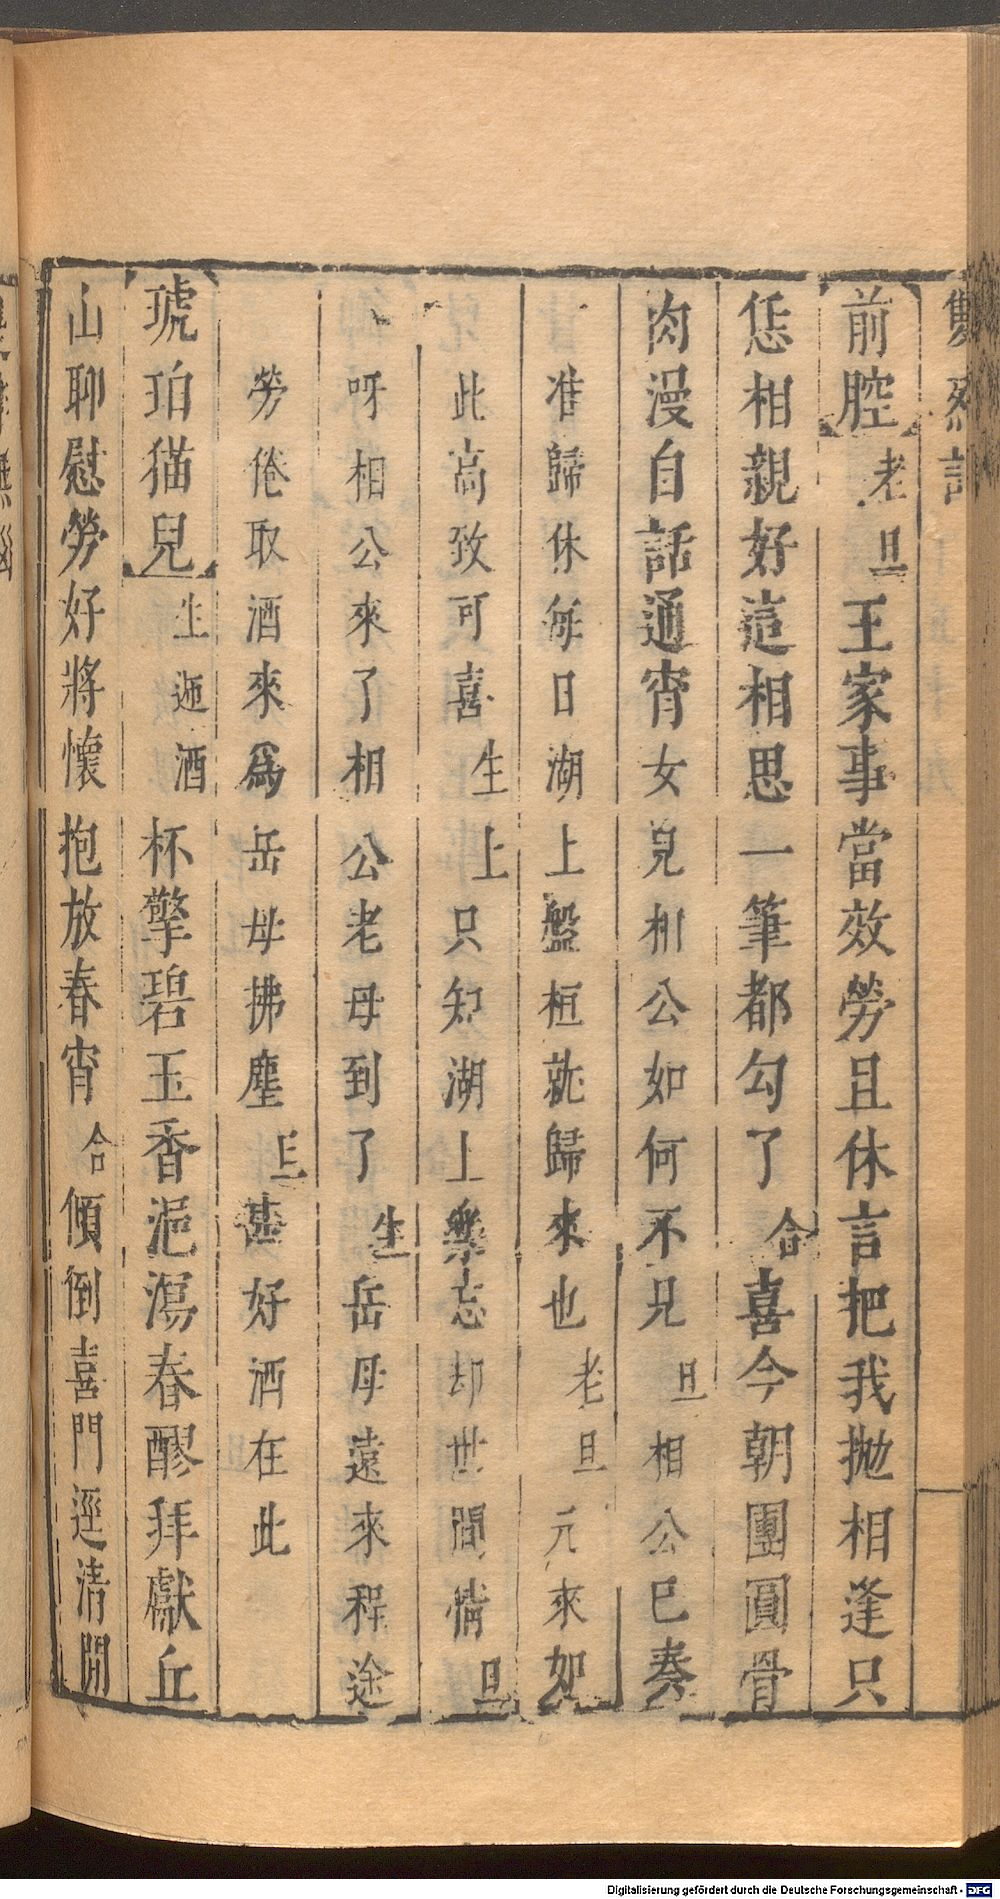 前腔老旦王家事當效勞且休言把我拋相逢只
恁相親好這相思一筆都勾了合喜今朝團圓骨
肉漫自話通宵女兒相公如何不見旦相公已奏
准歸休每日湖上盤桓就歸來也老旦元來如
此高致可喜生上只知湖上樂忘却世間情旦
呀相公來了相公老母到了生岳母遠來程途
勞倦取酒來爲岳母拂塵旦甚好酒在此
琥珀猫兒生遞酒杯擎碧玉香浥瀉春醪拜獻丘
山聊慰勞好將懷抱放春宵合傾倒喜門逕清閒
Digitalisierung gefördert durch die Deutsche Forschungsgemeinschaft - DFG